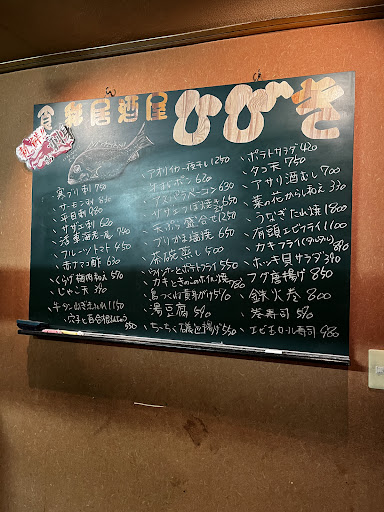 食彩居酒屋 ひびき
寒ブリ刺 750
サーモン刺 830
平目刺 980
サザエ刺
活車海老一尾 740
フルーツトマト 450
赤ナマコ酢 630
くらげ梅肉和え 570
じゃこ天 390
牛タン 1150
穴子と 550
アオリイカ一夜干し 1250
牛すじポン 620
アスパラベーコン 630
サザエつぼ焼き 650
天ぷら盛合せ 1250
ブリかま塩焼 650
茶碗蒸し 400
ウインナーとポテトフライ 550
カキときのこのホイル焼 780
鳥つくね黄身がけ 570
湯豆腐 590
ちーちく磯辺揚げ 550
ポテトサラダ 420
タコ天 750
アサリ酒むし 700
菜の花からし和え 330
うなぎたれ焼 1800
有頭エビフライ 1100
カキフライ(タルタル) 880
ホッキ貝サラダ 390
フグ唐揚げ 850
鉄火巻 800
巻寿司 590
エビ玉ロール寿司 980